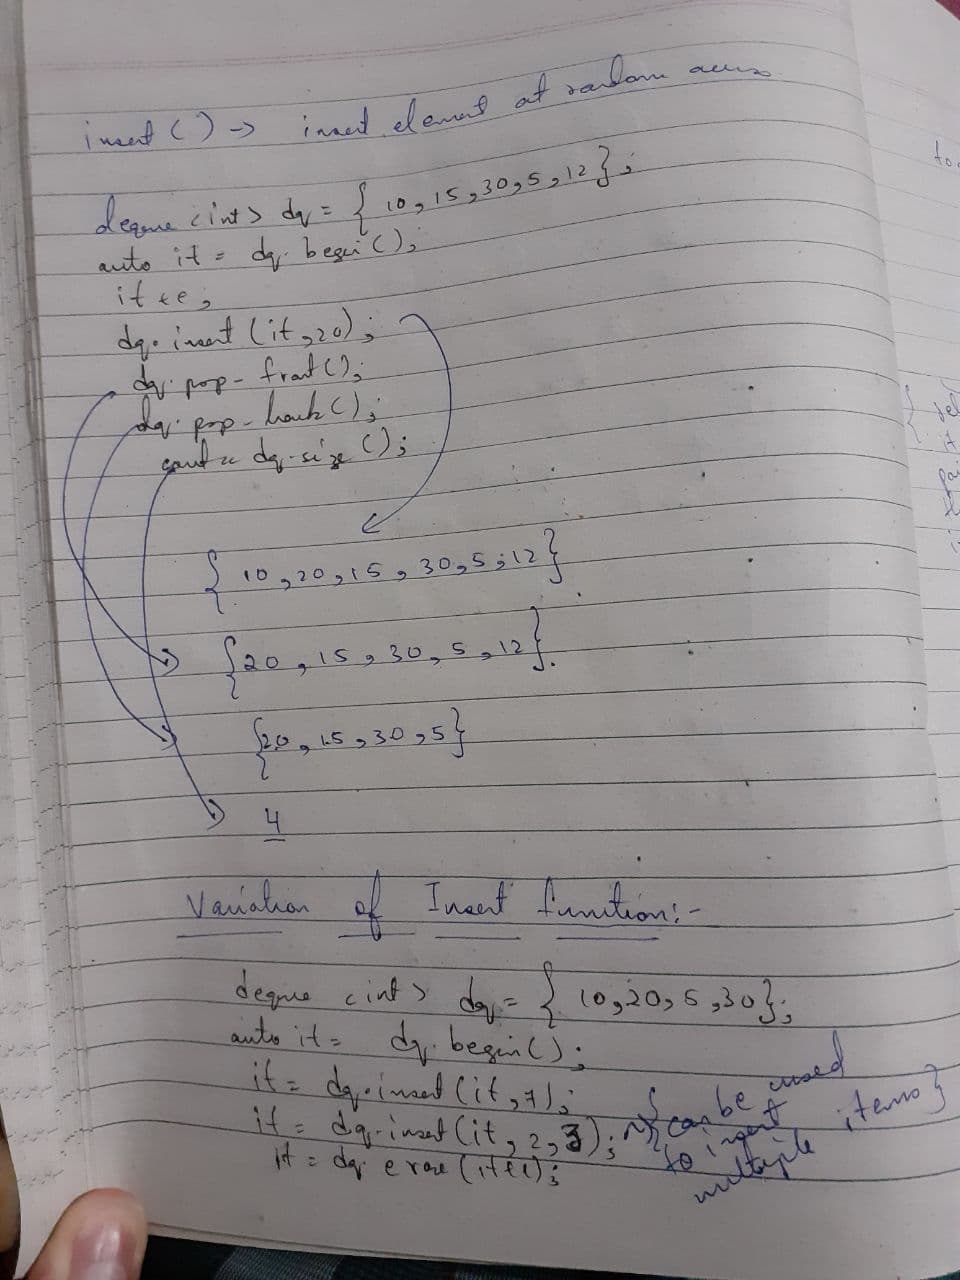 insert () -> insert element at random access
deque <int> dq = { 10, 15, 30, 5, 12 };
auto it = dq. begin();
it ++;
dq. insert (it, 20);
dq. pop - front ();
dq. pop - back ();
cout << dq. size ();
{ 10, 20, 15, 30, 5, 12 }
{ 20, 15, 30, 5, 12 }.
{ 20, 15, 30, 5 }
4
Variation of Insert function:-
deque <int> dq = { 10, 20, 5, 30 };
auto it = dq. begin();
it = dq. insert (it, 7);
it = dq. insert (it, 2, 3); {can be used
to insert
multiple items}
it = dq. erase (it+1);